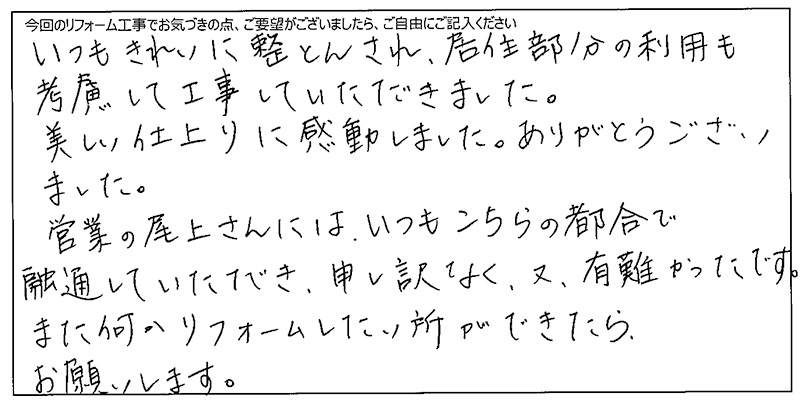 今回のリフォーム工事でお気づきの点、ご要望がございましたら、ご自由にご記入ください
いつもきれいに整とんされ、居住部分の利用も
考慮して工事していただきました。
美しい仕上りに感動しました。ありがとうござい
ました。
営業の尾上さんには、いつもこちらの都合で
融通していただき、申し訳なく、又、有難かったです。
また何かリフォームしたい所ができたら、
お願いします。